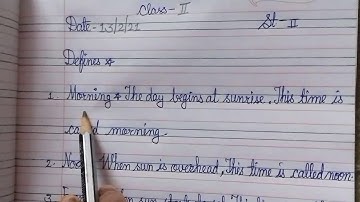 Class-II
Date-13/2/21
St-II
Defines
1. Morning The day begins at sunrise. This time is
called morning.
2. Noon When sun is overhead, This time is called noon.
3.